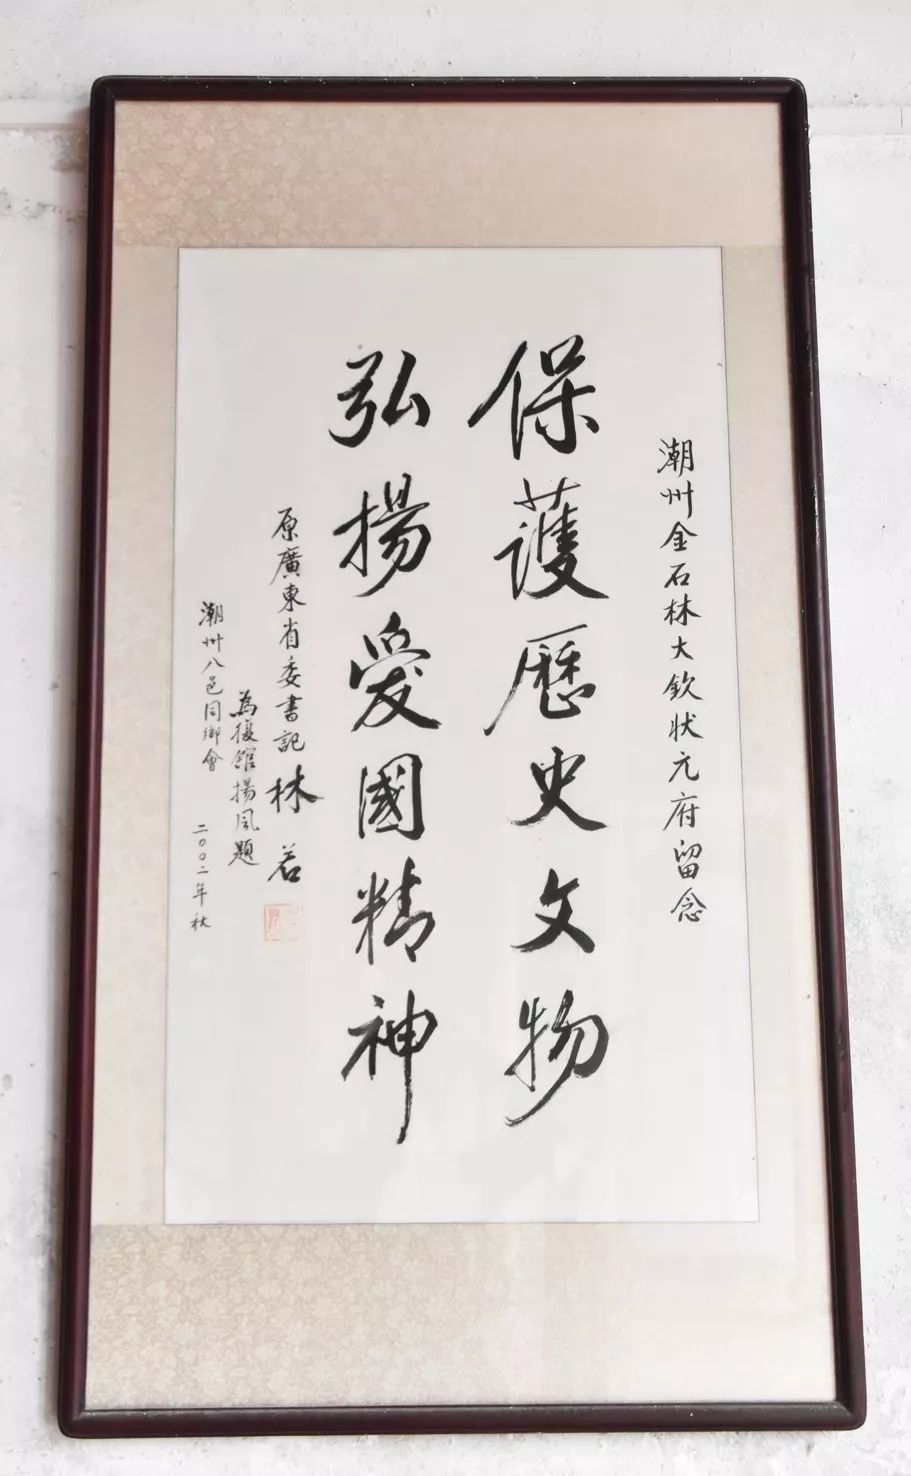 潮州金石林大欽状元府留念
保護歷史文物
弘揚愛國精神
原廣東省委書記 林若
為復館揚風題
潮州八邑同鄉會 二〇〇二年秋